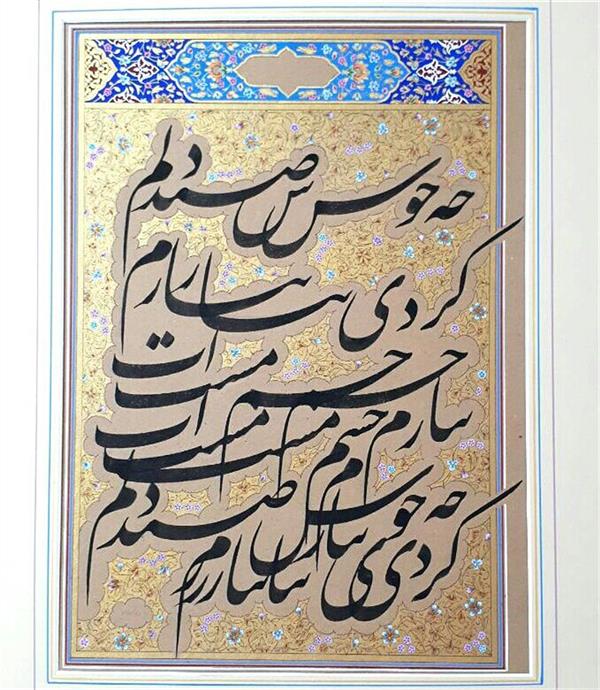 چه خوش صید دلم
کردی بنازم
چشم مستت
بنازم چشم مستت
چه خوش صید دلم
کردی بنازم